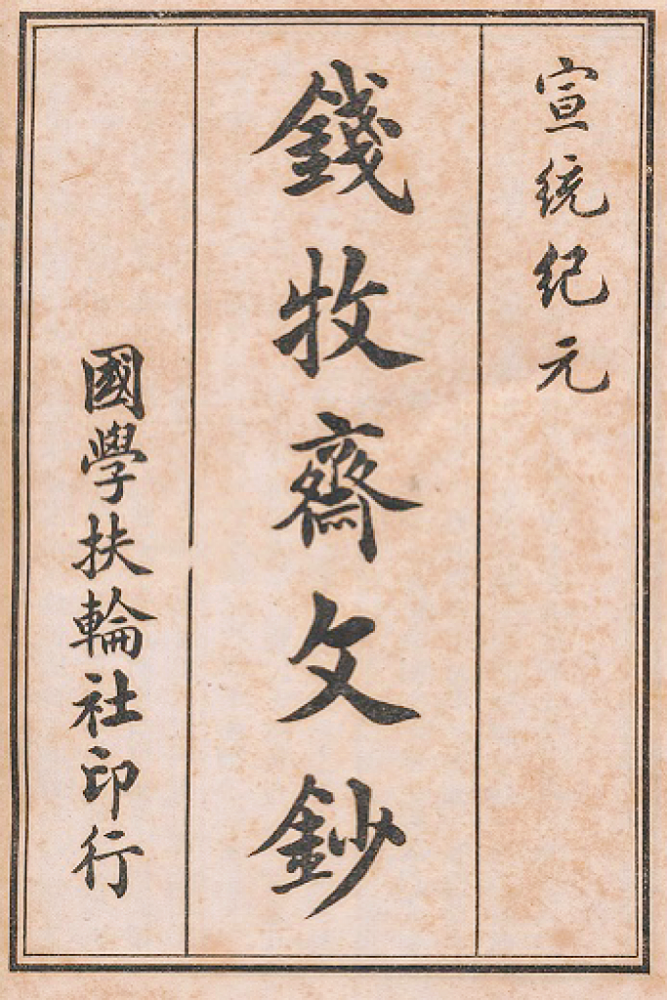 宣統紀元
錢牧齋文鈔
國學扶輪社印行